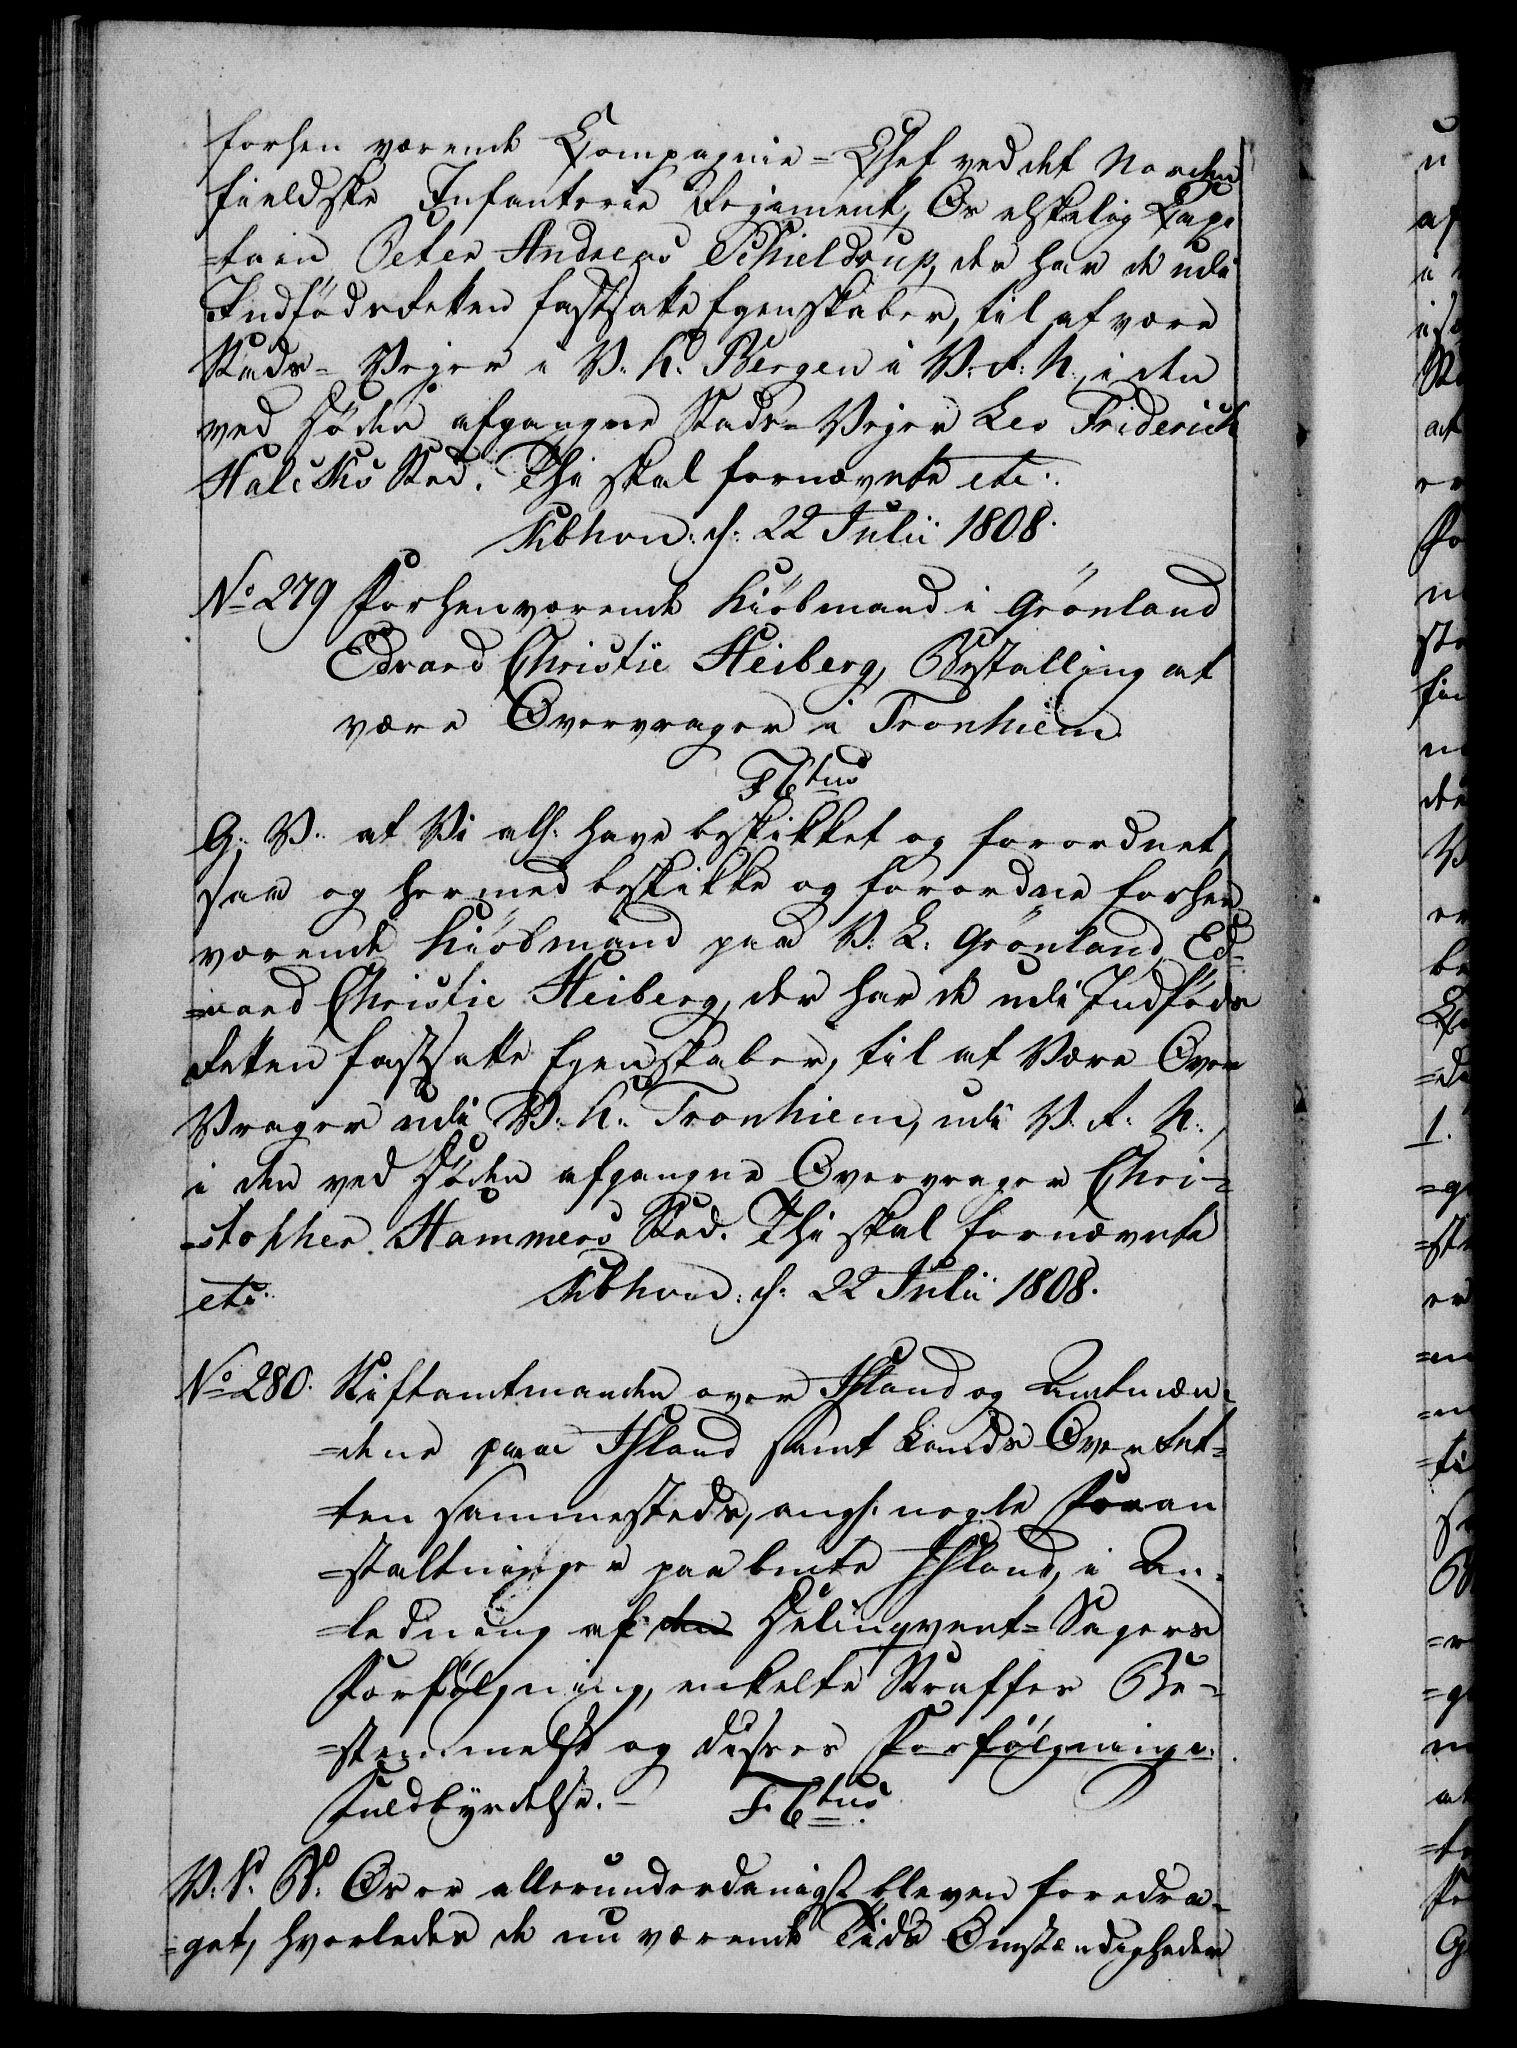 forhen værende Compagnie-Chef ved det Norden
fieldske Infanterie Regiment, Os elskelig Capi
=tain Peter Andreas Schieldrup, der har de udi
Indfødsretten fastsatte Egenskaber, til at være
Stads-Vejer i V. K. Bergen i V. R. N., i den
ved Døden afgangne Stads-Vejer Leo Friderich
Halcks Sted. Thi skal fornævnte etc.
Kbhvn: d: 22 Julii 1808.
No 279 Forhenværende Kiöbmand i Grönland
Edvard Christie Heiberg, Bestalling at
være Overvrager i Tronhiem
F. 6tus
G. V. at Vi alln. have beskikket og forordnet,
saa og hermed beskikke og forordne forhen
værende Kiöbmand paa V. L. Grönland Ed-
=vard Christie Heiberg, der har de udi Indføds
Retten fastsatte Egenskaber, til at Være Over
Vrager udi V. K. Tronhiem, udi V. R. N.,
i den ved Døden afgangne Overvrager Chri-
=stopher Hammers Sted. Thi skal fornævnte
etc. Kbhvn: d: 22 Julii 1808.
No 280. Stiftamtmanden over Island og Amtmæn-
=dene paa Island samt Lands Over Ret-
ten sammesteds, angl. nogle Foran
=staltninger paa bmte Island, i An-
=ledning af Delinqvent-Sagers
Forfølgning, enkelte Straffes Be-
=stemmelse og disses Forfølgnings
Fuldbyrdelse.- F. 6tus.
V. S. B. Os er allerunderdanigst bleven foredra-
=get, hvorledes de nu værende Tids Omstændigheder